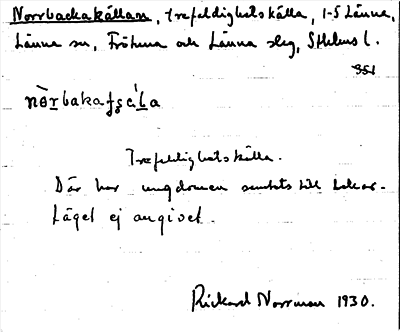 Norrbackakällan, trefaldighetskälla, 1-5 Länna,
Länna sn, Frötuna och Länna slg, Sthlms l.
351
Trefaldighetskälla.
Där har ungdomen samlats till lekar.
Läget ej angivet.
Rickard Norrman 1930.